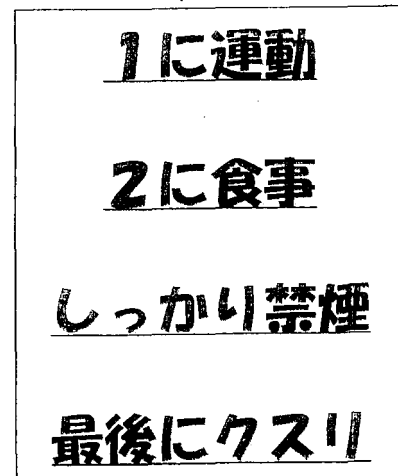 1に運動
2に食事
しっかり禁煙
最後にクスリ